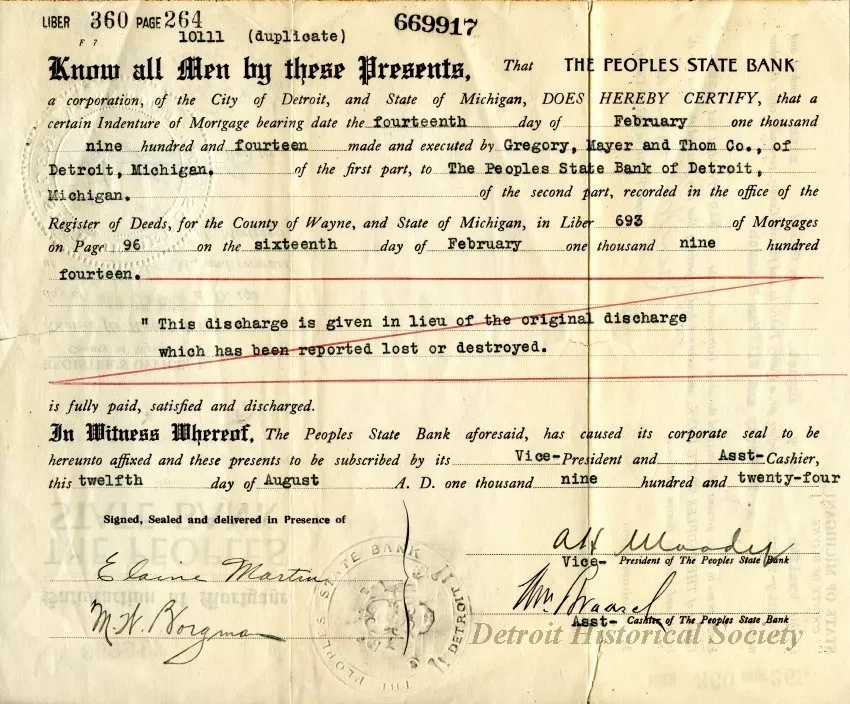 LIBER 360 PAGE 264
669917
10111 (duplicate)
Know all Men by these Presents, That THE PEOPLES STATE BANK
a corporation, of the City of Detroit, and State of Michigan, DOES HEREBY CERTIFY, that a
certain Indenture of Mortgage bearing date the fourteenth day of February one thousand
nine hundred and fourteen made and executed by Gregory, Mayer and Thom Co., of
Detroit, Michigan. of the first part, to The Peoples State Bank of Detroit,
Michigan. of the second part, recorded in the office of the
Register of Deeds, for the County of Wayne, and State of Michigan, in Liber 693 of Mortgages
on Page 96 on the sixteenth day of February one thousand nine hundred
fourteen.
" This discharge is given in lieu of the original discharge
which has been reported lost or destroyed.
is fully paid, satisfied and discharged.
In Witness Whereof, The Peoples State Bank aforesaid, has caused its corporate seal to be
hereunto affixed and these presents to be subscribed by its Vice-President and Asst-Cashier,
this twelfth day of August A. D. one thousand nine hundred and twenty-four
Signed, Sealed and delivered in Presence of
Moody
Vice- President of The Peoples State Bank
Elaine Martin
Asst- Cashier of The Peoples State Bank
M. W. Borgman
THE PEOPLES STATE BANK
DETROIT
Detroit Historical Society